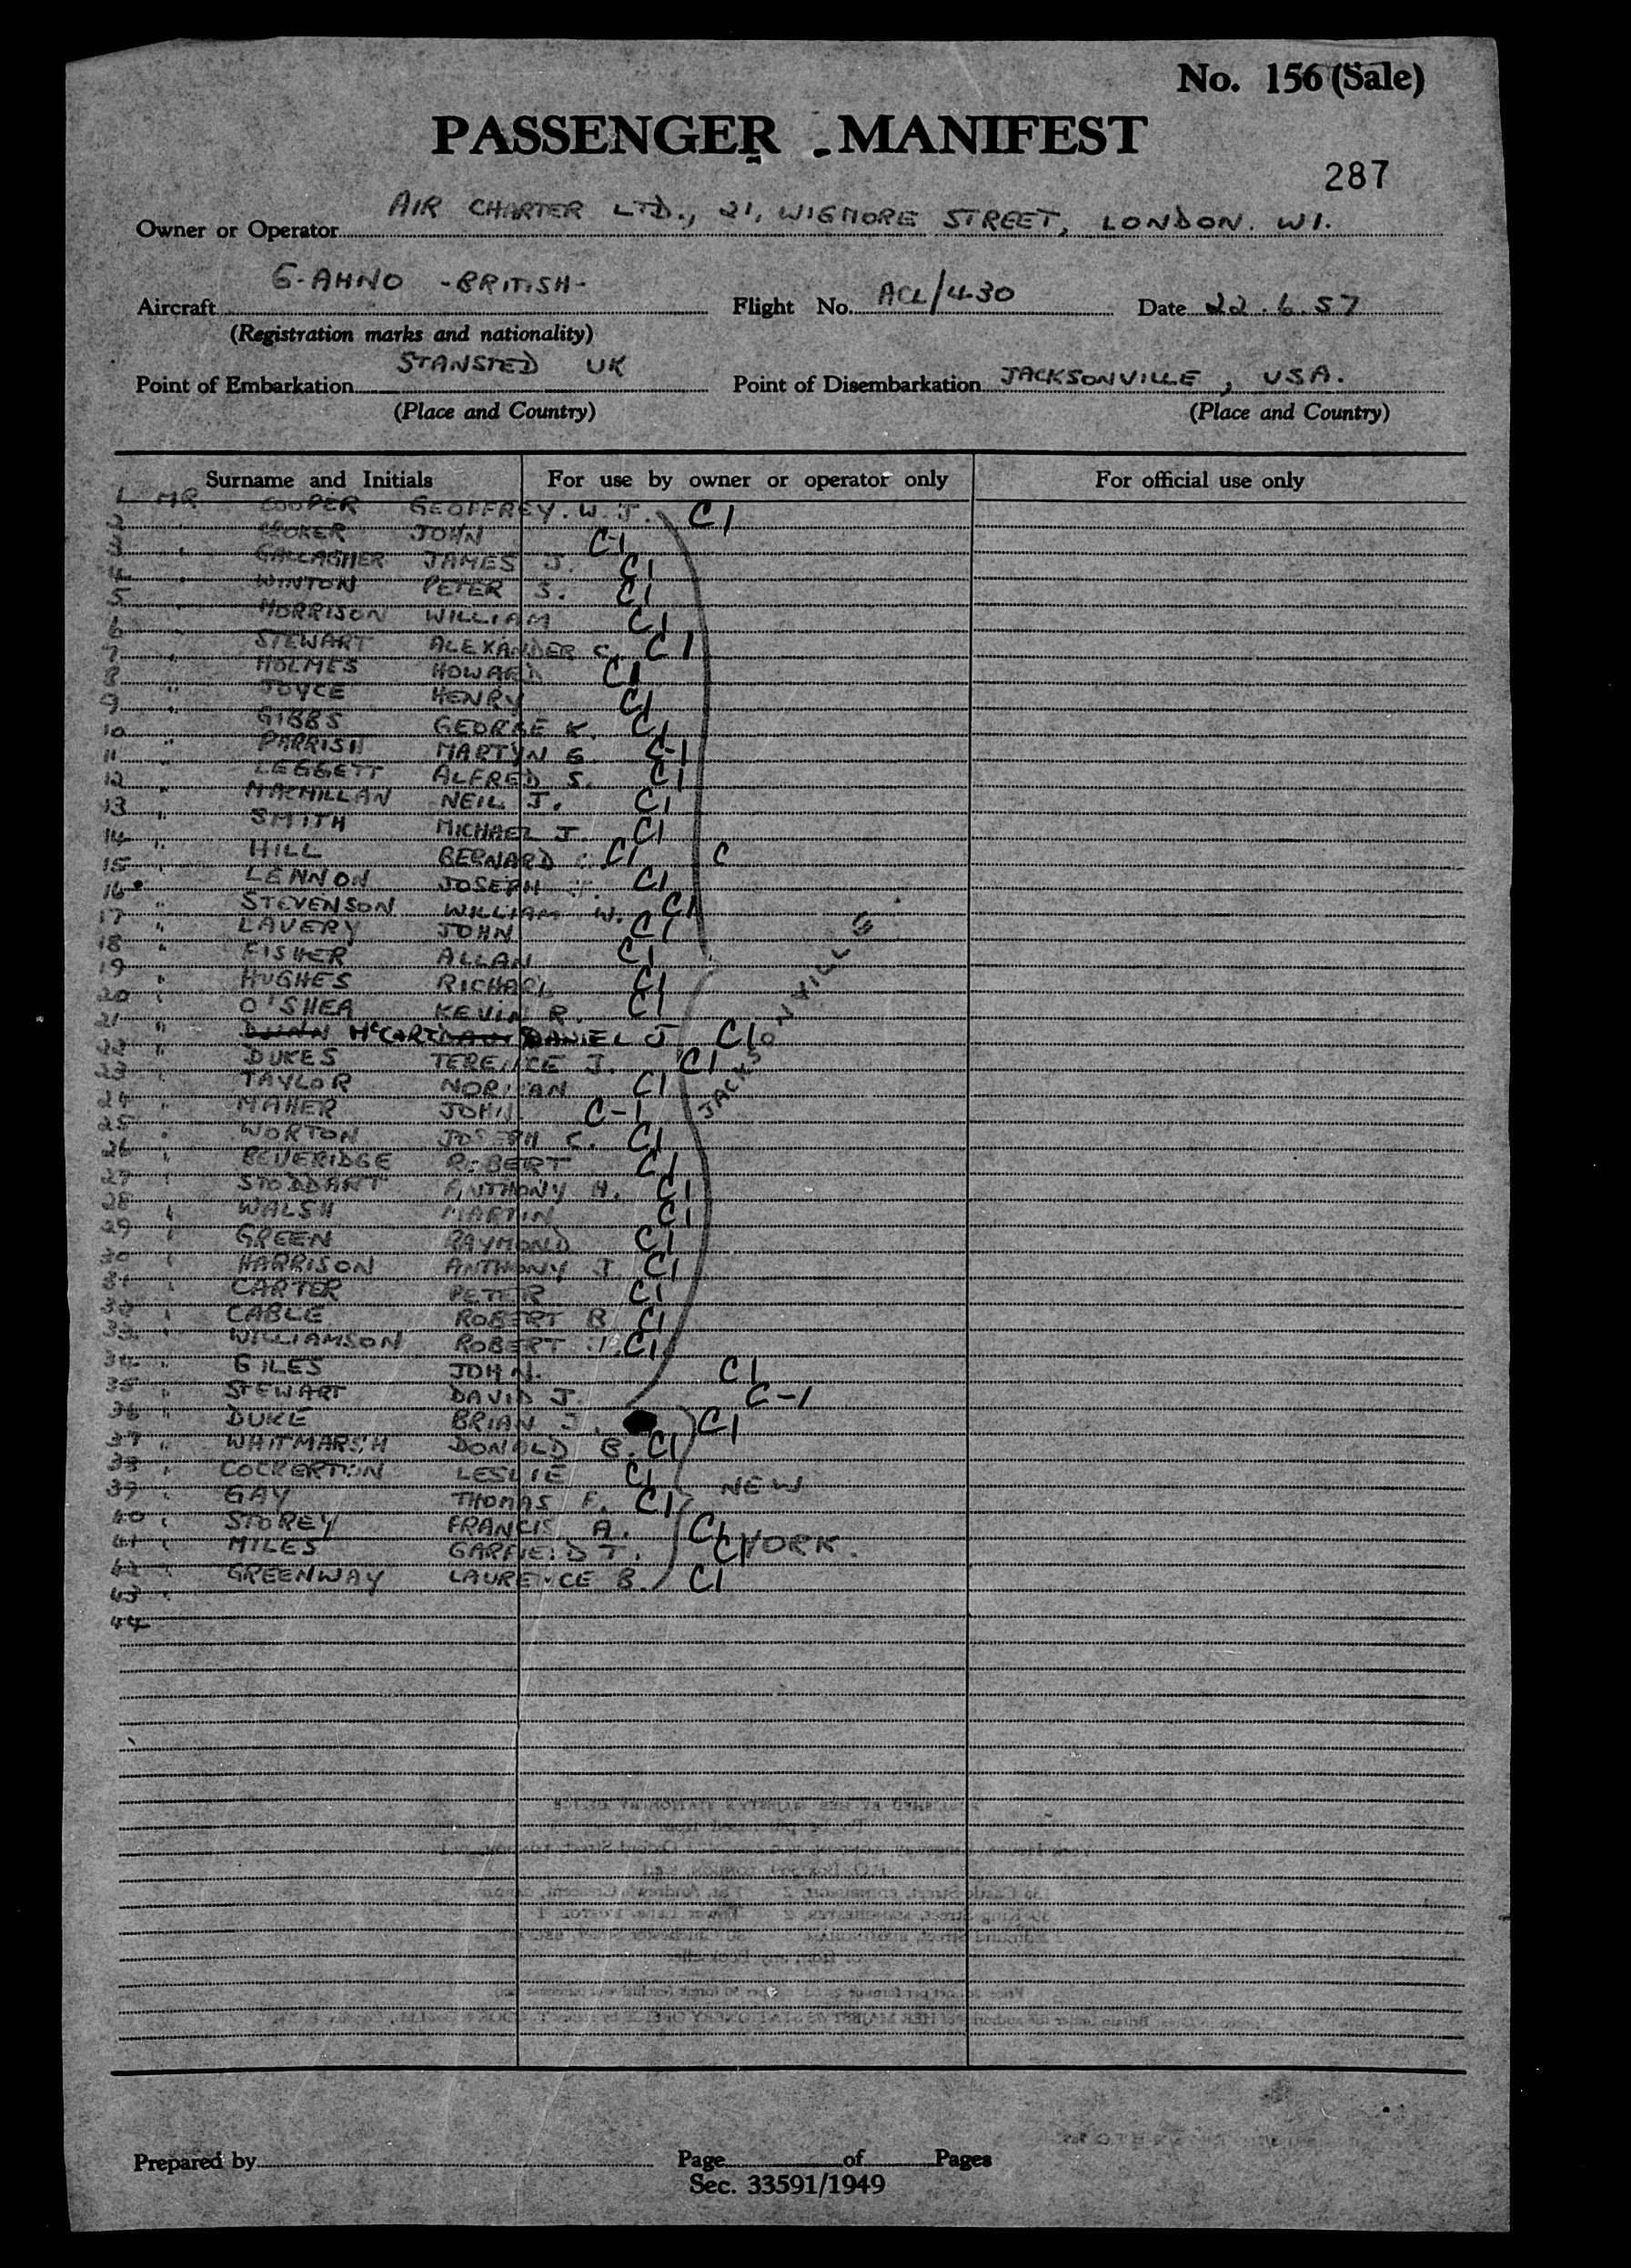 No. 156 (Sale)
PASSENGER MANIFEST
287
Owner or Operator AIR CHARTER LTD., 21, WIGMORE STREET, LONDON. W1.
Aircraft G-AHNO -BRITISH- Flight No. ACL/430 Date 22.6.57
(Registration marks and nationality)
Point of Embarkation STANSTED UK Point of Disembarkation JACKSONVILLE, USA.
(Place and Country) (Place and Country)
Surname and Initials For use by owner or operator only For official use only
1 MR COOPER GEOFFREY. W. J. C1
2 CROKER JOHN C-1
3 " GALLAGHER JAMES J. C1
4 " WINTON PETER S. C1
5 " MORRISON WILLIAM C1
6 " STEWART ALEXANDER C. C1
7 " HOLMES HOWARD C1
8 " JOYCE HENRY C1
9 " GIBBS GEORGE K. C1
10 " PARRISH MARTYN G. C-1
11 " LEGGETT ALFRED S. C1
12 " MACMILLAN NEIL J. C1
13 " SMITH MICHAEL J. C1
14 " HILL BERNARD C1 C
15 " LENNON JOSEPH C1
16 " STEVENSON WILLIAM W. C1
17 " LAVERY JOHN C1
18 " FISHER ALLAN C1
19 " HUGHES RICHARD C1
20 " O'SHEA KEVIN R. C1
21 " DUNN McCARTNAN DANIEL J C1
22 " DUKES TERENCE J. C1
JACKSONVILLE
23 " TAYLOR NORMAN C1
24 " MAHER JOHN C-1
25 " WORTON JOSEPH C. C1
26 " BEVERIDGE ROBERT C1
27 " STODDART ANTHONY H. C1
28 " WALSH MARTIN C1
29 " GREEN RAYMOND C1
30 " HARRISON ANTHONY J. C1
31 " CARTER PETER C1
32 " CABLE ROBERT B. C1
33 " WILLIAMSON ROBERT C1
34 " GILES JOHN. C1
35 " STEWART DAVID J. C-1
36 " DUKE BRIAN J. C1
37 " WHITMARSH DONALD B. C1
38 " COCKERTON LESLIE C1
39 " GAY THOMAS F. C1 NEW
40 " STOREY FRANCIS A. C1
41 " MILES GARFIELD T. C1 YORK.
42 " GREENWAY LAURENCE B. C1
43 "
44
Prepared by Page of Pages
Sec. 33591/1949